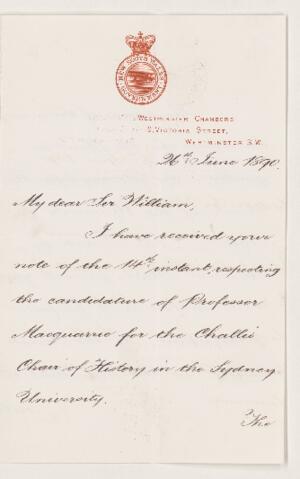 NEW SOUTH WALES
GOVERNMENT
WESTMINSTER CHAMBERS
VICTORIA STREET,
WESTMINSTER S.W.
26th June 1890.
My dear Sir William,
I have received your
note of the 14th instant, respecting
the candidature of Professor
Macquarrie for the Challis
Chair of History in the Sydney
University.
The